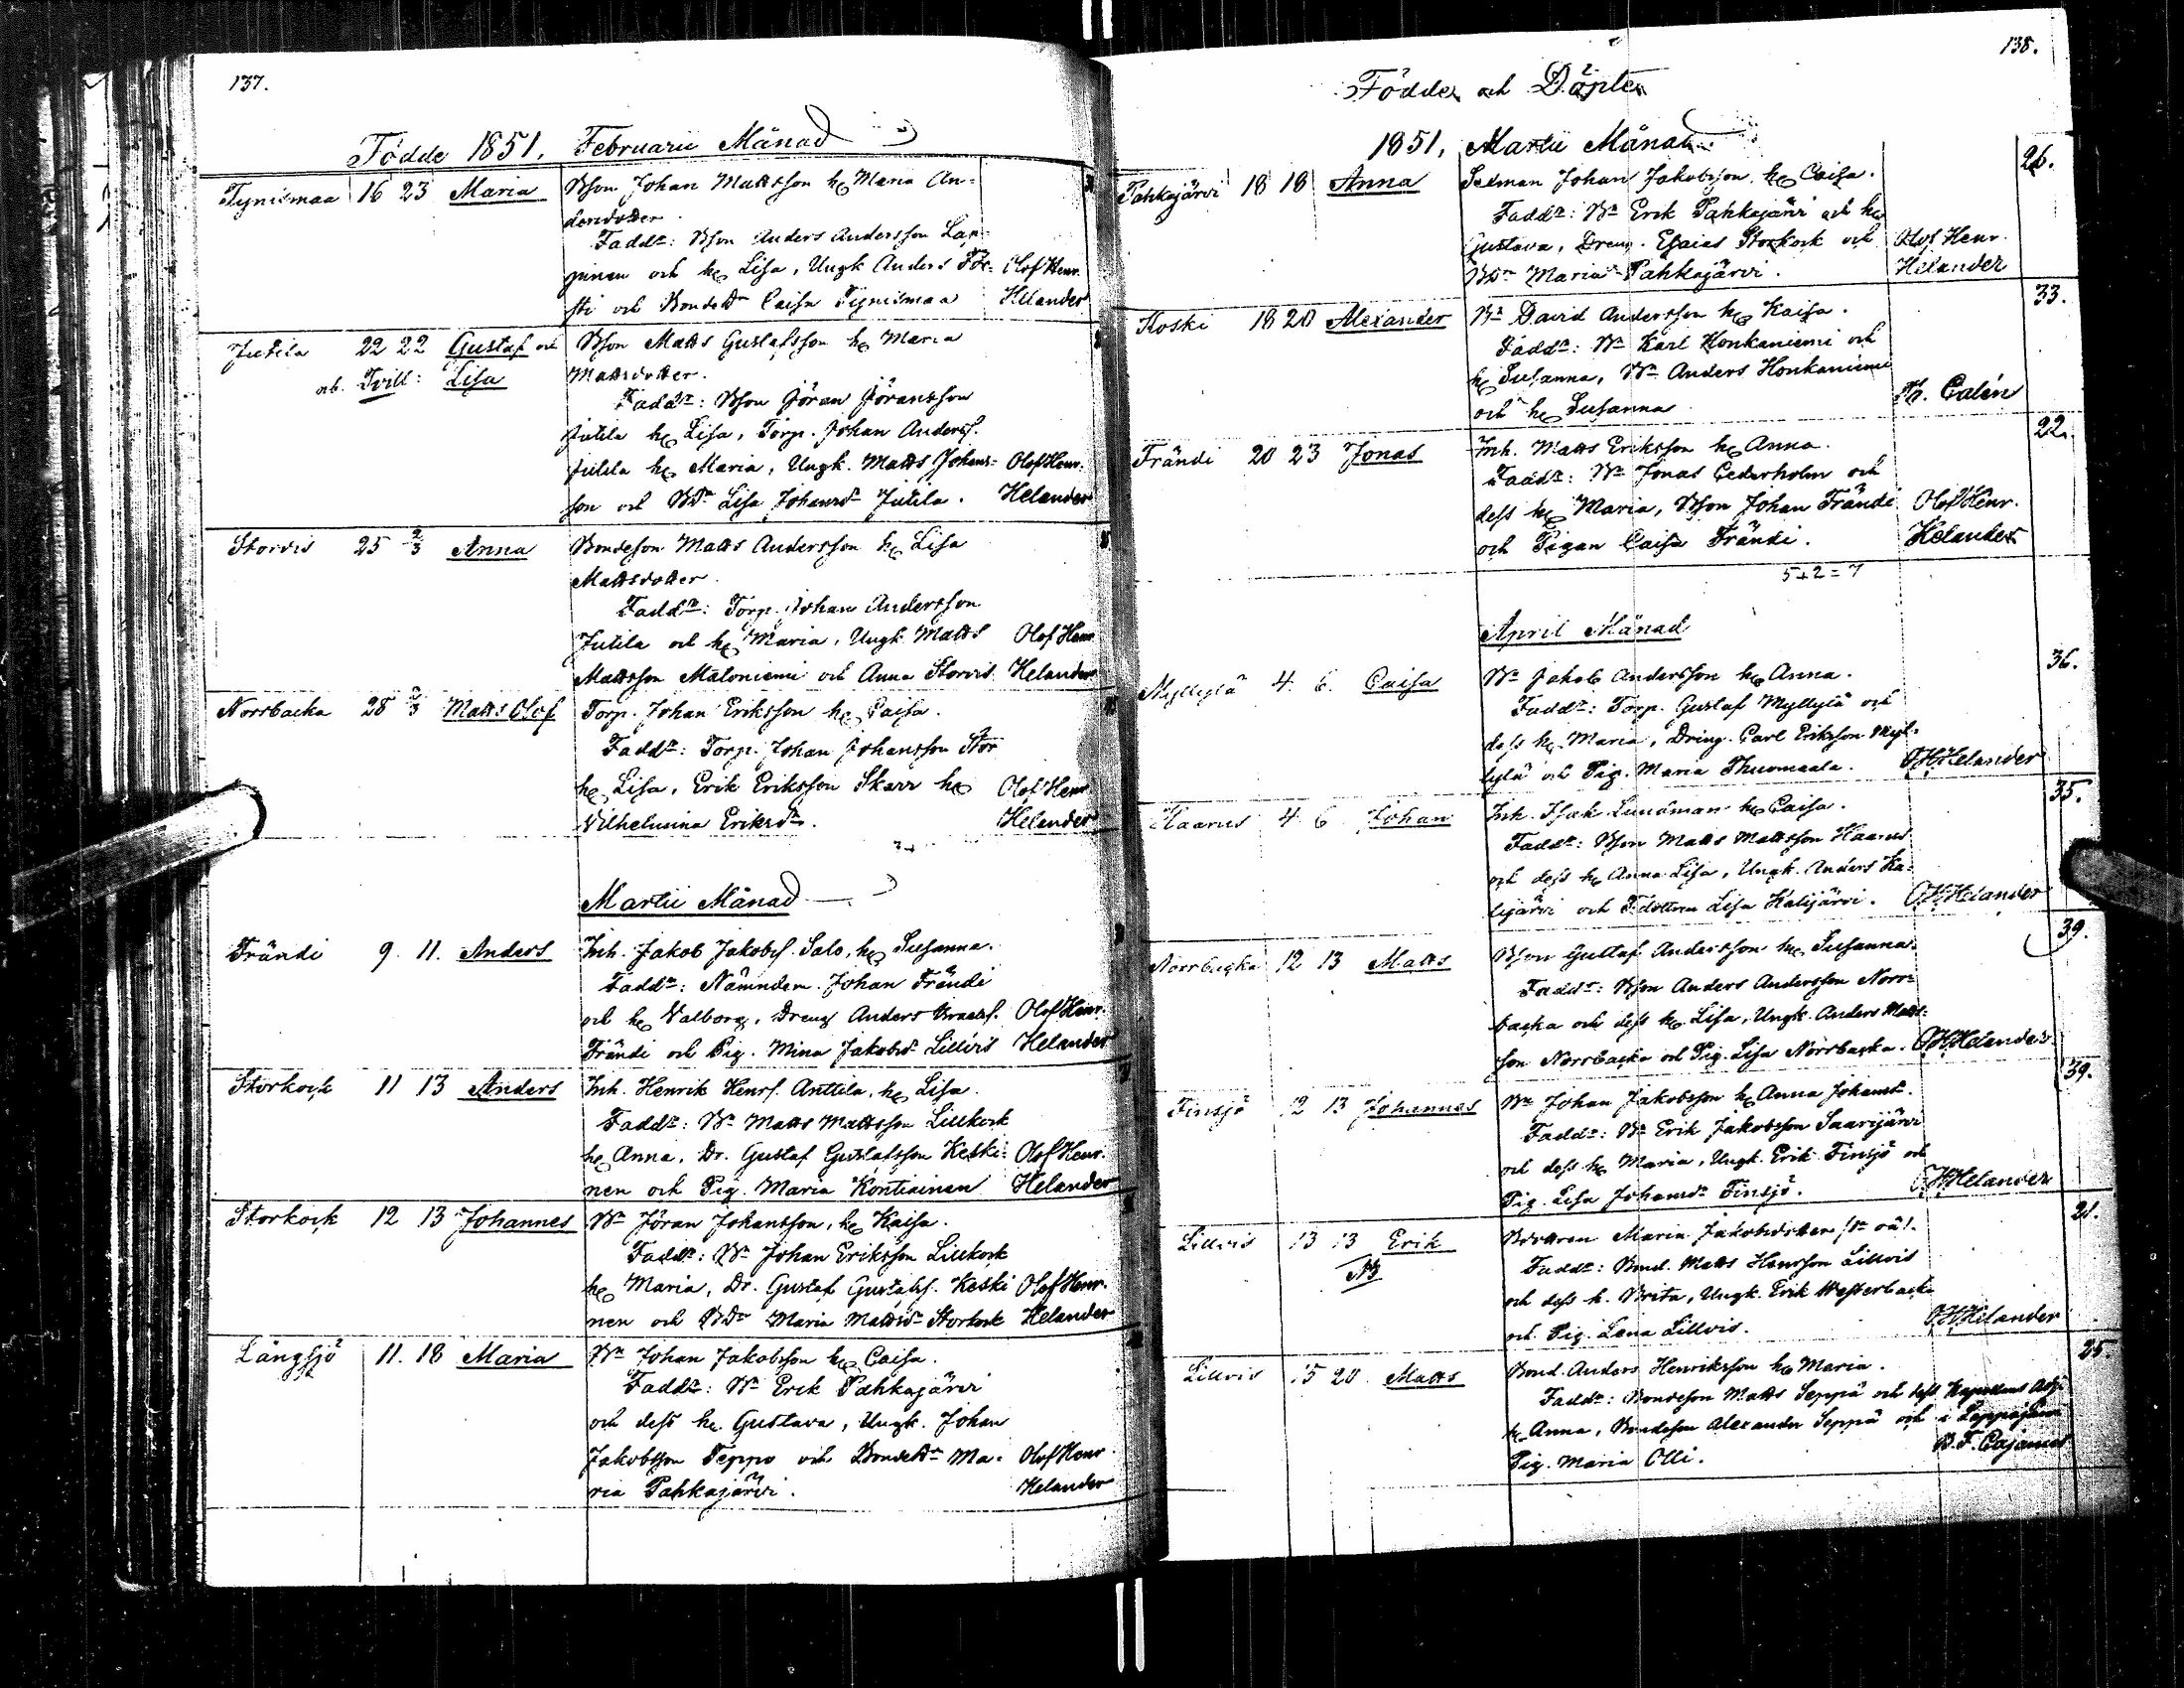 137.
Födde 1851. Februarii Månad
Tynismaa 16 23 Maria Bson Johan Mattsson h. Maria An-
dersdotter.
Faddr: Bson Anders Andersson Lap-
pinen och h. Lisa, Ungk Anders
sti och Bonded. Caisa Tynismaa
Olof Henr.
Helander
Jutila 22 22 Gustaf och Bson Matts Gustafsson h. Maria
ob. Tvill: Lisa Mattsdotter.
Faddr: Bson Jöran Jöransson
Jutila h. Lisa, Torp. Johan Anderss.
Jutila h. Maria, Ungk. Matts Johans- Olof Henr.
son och Bdr Lisa Johansdr Jutila. Helander
Storvis 25 2/3 Anna Bondeson Matts Andersson h. Lisa
Mattsdotter.
Faddr: Torp. Johan Andersson
Jutila och h. Maria, Ungk Matts Olof Henr.
Mattsson Mätoniemi och Anna Storvis Helander
Norrbacka 28 2/3 Matts Olof Torp. Johan Eriksson h. Caisa.
Faddr: Torp. Johan Johansson Stor
h. Lisa, Erik Eriksson Skarr h. Olof Henr.
Vilhelmina Eriksdr. Helander
Martii Månad
Frändi 9. 11. Anders Inh. Jakob Jakobss. Salo, h. Susanna.
Faddr: Nämndem. Johan Frändi
och h. Valborg, Dreng Anders Olof Henr.
Frändi och Pig. Mina Jakobsdr Lillvis Helander
Storkock 11 13 Anders Inh. Henrik Henrs. Anttila, h. Lisa.
Faddr: Br Matts Mattsson Lillkock
h. Anna, Dr. Gustaf Gustafsson Keski- Olof Henr.
nen och Pig. Maria Kontiainen Helander
Storkock 12 13 Johannes Br Jöran Johansson, h. Kaisa.
Faddr: Br Johan Eriksson Lillkock
h. Maria, Dr. Gustaf Gustafss. Keski Olof Henr.
nen och Bdr Maria Mattsdr Storkock Helander
Långsjö 11. 18 Maria Br Johan Jakobsson h. Caisa.
Faddr: Br Erik Pahkajärvi
och dess h. Gustava, Ungk. Johan
Jakobsson Teppo och Bondedr Ma- Olof Henr
ria Pahkajärvi. Helander
138.
Födde och Döpte
1851, Martii Månad
Pahkajärvi 18 18 Anna Sexman Johan Jakobsson h. Caisa. 26.
Faddr: Br Erik Pahkajärvi och h.
Gustava, Dreng. Esaias Storkock och Olof Henr.
Bdr Maria Pahkajärvi. Helander
Koski 18 20 Alexander Br David Andersson h. Kaisa. 33.
Faddr: Br Karl Honkaniemi och
h. Susanna, Br Anders Honkaniemi
och h. Susanna Calén
Frändi 20 23 Jonas Inh. Matts Eriksson h. Anna. 22.
Faddr: Br Jonas Cederholm och
dess h. Maria, Bson Johan Frändi Olof Henr.
och Pigan Caisa Frändi. Helander
5+2=7
April Månad
Myllylä 4. 6. Caisa Br Jakob Andersson h. Anna. 36.
Faddr: Torp. Gustaf Myllylä och
dess h. Maria, Dräng. Carl Eriksson Myl-
lylä och Pig. Maria Thuomaala. O.H.Helander
Haarus 4 6 Johan Inh. Isak Lundman h. Caisa. 35.
Faddr: Bson Matts Mattsson Haarus
och dess h. Anna Lisa, Ungk. Anders Ka-
lijärvi och Lisa Kalijärvi. O.H.Helander
Norrbacka 12 13 Matts Bson Gustaf Andersson h. Susanna. 39.
Faddr: Bson Anders Andersson Norr-
backa och dess h. Lisa, Ungk. Anders Matts-
son Norrbacka och Pig. Lisa Norrbacka. O.H.Helander
Finsjö 12 13 Johannes Br Johan Jakobsson h. Anna Johansdr. 39.
Faddr: Br Erik Jakobsson Saarijärvi
och dess h. Maria, Ungk. Erik Finsjö och
Pig. Lisa Johansdr Finsjö. O.H.Helander
Lillvis 13 13 Erik Bdottren Maria Jakobsdotter 21.
NB Faddr: Bond. Matts Hansson Lillvis
och dess h. Brita, Ungk. Erik Westerbacka
och Pig. Lena Lillvis. O.H.Helander
Lillvis 15 20 Matts Bond. Anders Henriksson h. Maria. 25.
Faddr: Bondeson Matts Seppä och dess Kapellans Adj.
h. Anna, Bondeson Alexander Seppä och i Lappajärvi
Pig. Maria Olli. B.F. Cajanus